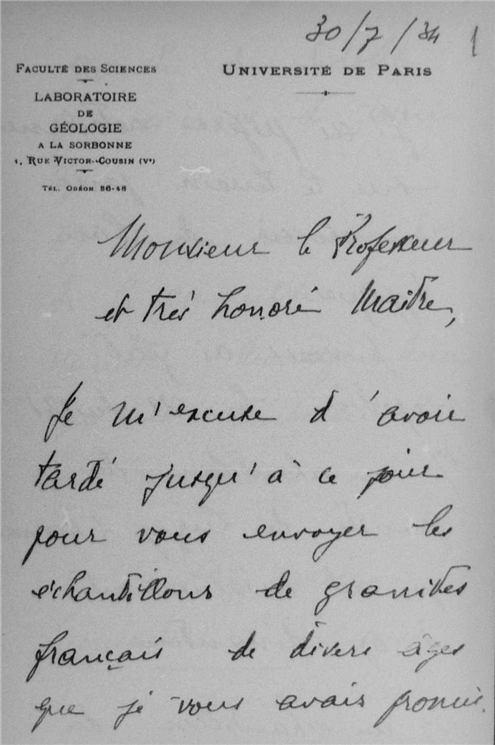 30/7/34
1
FACULTÉ DES SCIENCES
UNIVERSITÉ DE PARIS
LABORATOIRE
DE
GÉOLOGIE
A LA SORBONNE
1, RUE VICTOR-COUSIN (Vᵉ)
TÉL. ODÉON 86-48
Monsieur le Professeur
et très honoré Maître,
Je m'excuse d'avoir
tardé jusqu'à ce jour
pour vous envoyer les
échantillons de granites
français de divers âges
que je vous avais promis.